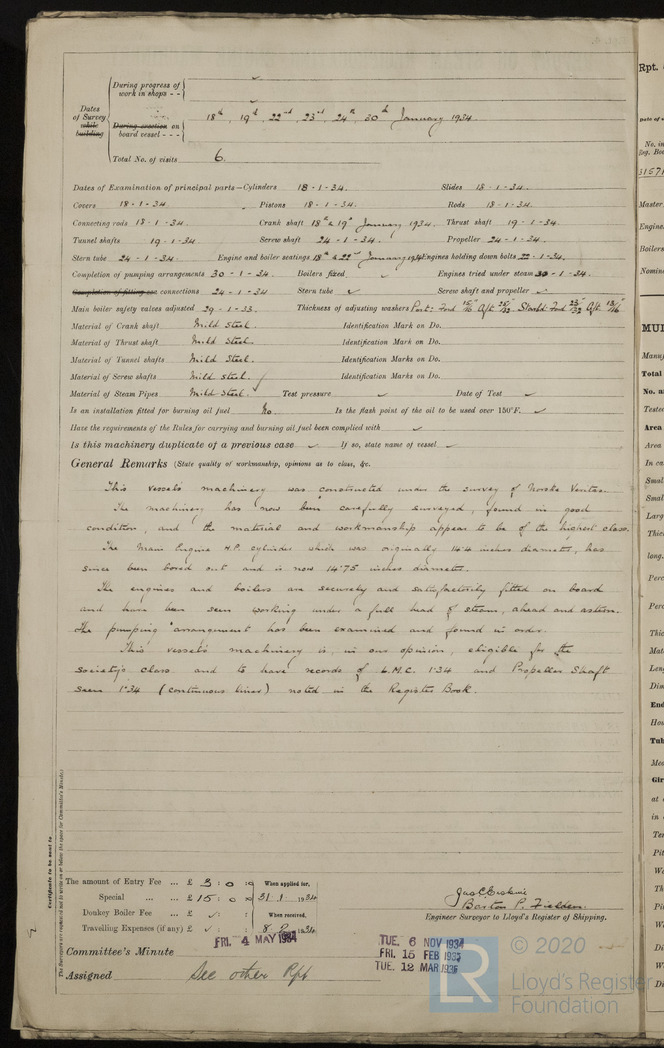 During progress of work in shops - -
Dates of Survey while building
During erection on board vessel - - - 18th, 19th, 22nd, 23rd, 24th, 30th January 1934.
Total No. of visits 6.
Dates of Examination of principal parts—Cylinders 18-1-34. Slides 18-1-34.
Covers 18-1-34. Pistons 18-1-34. Rods 18-1-34.
Connecting rods 18-1-34. Crank shaft 18th & 19th January 1934. Thrust shaft 19-1-34.
Tunnel shafts 19-1-34 Screw shaft 24-1-34. Propeller 24-1-34.
Stern tube 24-1-34. Engine and boiler seatings 18th & 22nd January 1934 Engines holding down bolts 22-1-34.
Completion of pumping arrangements 30-1-34. Boilers fixed ✓ Engines tried under steam 30-1-34.
Completion of fitting sea connections 24-1-34. Stern tube ✓ Screw shaft and propeller ✓
Main boiler safety valves adjusted 29-1-33. Thickness of adjusting washers Port: Ford 15/16" Aft 25/32" Starbd: Ford 23/32" Aft 13/16"
Material of Crank shaft Mild Steel. Identification Mark on Do.
Material of Thrust shaft Mild Steel. Identification Mark on Do.
Material of Tunnel shafts Mild Steel. Identification Marks on Do.
Material of Screw shafts Mild steel. Identification Marks on Do.
Material of Steam Pipes Mild Steel. ✓ Test pressure ✓ Date of Test ✓
Is an installation fitted for burning oil fuel No. Is the flash point of the oil to be used over 150°F. ✓
Have the requirements of the Rules for carrying and burning oil fuel been complied with ✓
Is this machinery duplicate of a previous case ✓ If so, state name of vessel ✓
General Remarks (State quality of workmanship, opinions as to class, &c.
This vessel's machinery was constructed under the survey of Norske Veritas.
The machinery has now been carefully surveyed, found in good
condition, and the material and workmanship appear to be of the highest class.
The Main Engine H.P. cylinder which was originally 14.4 inches diameter, has
since been bored out and is now 14.75 inches diameter.
The engines and boilers are securely and satisfactorily fitted on board
and have been seen working under a full head of steam, ahead and astern.
The pumping arrangement has been examined and found in order.
This vessel's machinery is, in our opinion, eligible for the
society's class and to have records of L.M.C. 1.34 and Propeller Shaft
seen 1.34 (continuous liner) noted in the Register Book.
Certificate to be sent to
The Surveyors are requested not to write on or below the space for Committee's Minute.
The amount of Entry Fee ... £ 3 : 0 : 0 When applied for,
Special ... ... £ 15 : 0 : 0 31.1.1934
Donkey Boiler Fee ... £ ✓ : : When received,
Travelling Expenses (if any) £ ✓ : : 8 1934
Barton P. Fielden
Engineer Surveyor to Lloyd's Register of Shipping.
Committee's Minute FRI. 4 MAY 1934
TUE. 6 NOV 1934
FRI. 15 FEB 1935
TUE. 12 MAR 1935
Assigned See other Rpt
LR
© 2020
Lloyd's Register
Foundation
Rpt.
Date of
No. in
Reg. Boo
31571
Master
Engine
Boilers
Nomin
MUL
Manuf
Total
No. a
Tested
Area
Area
In ca
Smal
Smal
Larg
Thick
long.
Perc
Perc
Thic
Mat
Len
Dia
End
Tub
Mea
Gir
at
in
Ten
Pit
We
Th
Pit
W
Di
W
Di